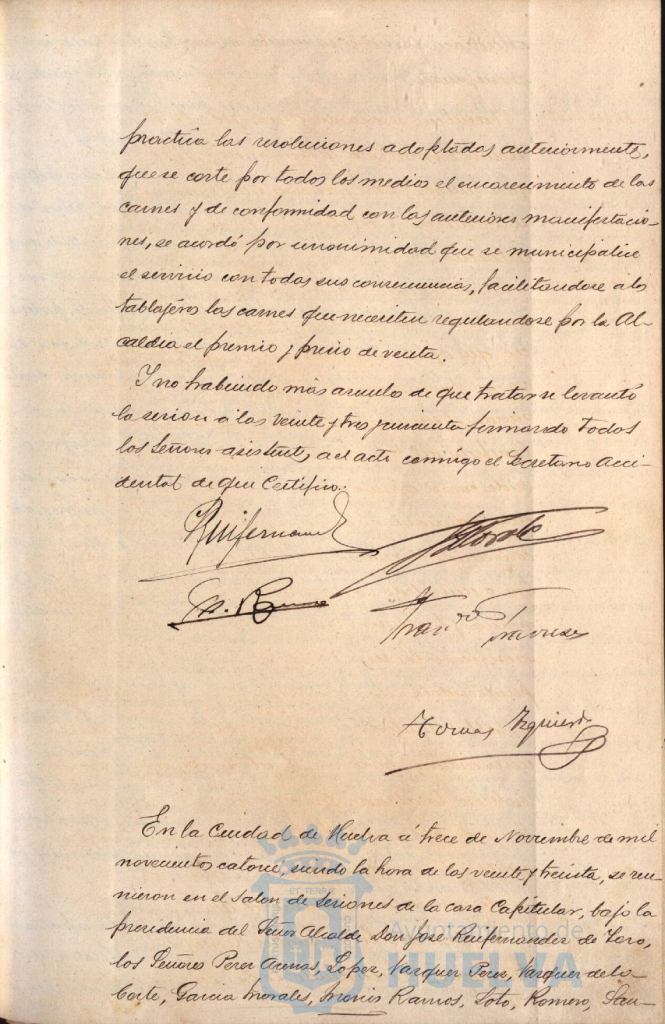 practica las resoluciones adoptadas anteriormente,
que se corte por todos los medios el encarecimiento de las
carnes y de conformidad con las anteriores manifestacio-
nes, se acordó por unanimidad que se municipalice
el servicio con todas sus consecuencias, facilitandose a los
tablajeros las carnes que necesiten regulandose por la Al-
caldia el premio y precio de venta.
Y no habiendo más asunto de que tratar se levantó
la sesion a las veinte y tres y cincuenta firmando todos
los Señores asistentes, al acto conmigo el Secretario Acci-
dental de que Certifico.:
Ruifernandez
Tomas Izquierdo
En la Ciudad de Huelva á trece de Noviembre de mil
novecientos catorce, siendo la hora de las veinte y treinta, se reu-
nieron en el Salon de Sesiones de la casa Capitular, bajo la
presidencia del Señor Alcalde Don José Ruifernandez de Toro,
los Señores Perez Arenas, Lopez, Vazquez Perez, Vazquez de la
Corte, Garcia Morales, Ramos, Soto, Romero, San-
Ayuntamiento de
HUELVA